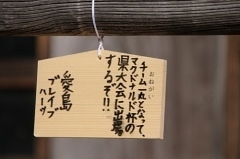 おねがい
チーム一丸となって、
マクドナルド杯の
県大会に出場
するぞ!!
愛島
ブレイブ
ハーツ